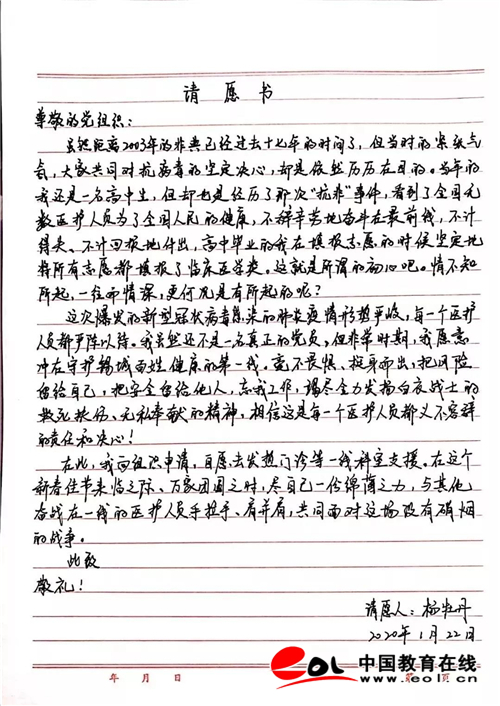 请愿书
尊敬的党组织：
虽然距离2003年的非典已经过去十七年的时间了，但当时的紧张气
氛，大家共同对抗病毒的坚定决心，却是依然历历在目的。当年的
我还是一名高中生，但却也是经历了那次“抗非”事件，看到了全国无
数医护人员为了全国人民的健康，不辞辛劳地奋斗在最前线，不计
得失、不计回报地付出，高中毕业的我在填报志愿的时候坚定地
将所有志愿都填报了临床医学类。这就是所谓的初心吧。情不知
所起，一往而情深，更何况是有所起的呢？
这次爆发的新型冠状病毒感染的肺炎疫情形势严峻，每一个医护
人员都严阵以待。我虽然还不是一名真正的党员，但非常时期，我愿意
冲在守护锡城百姓健康的第一线。毫不畏惧、挺身而出，把风险
留给自己，把安全留给他人，忘我工作，竭尽全力发扬白衣战士的
救死扶伤、无私奉献的精神，相信这是每一个医护人员都义不容辞
的责任和决心！
在此，我向组织申请，自愿去发热门诊等一线科室支援。在这个
新春佳节来临之际、万家团圆之时，尽自己一份绵薄之力，与其他
奋战在一线的医护人员手拉手、肩并肩，共同面对这场没有硝烟
的战争。
此致
敬礼！
请愿人：杨牡丹
2020年1月22日
年 月 日
第 页
eOL 中国教育在线
www.eol.cn